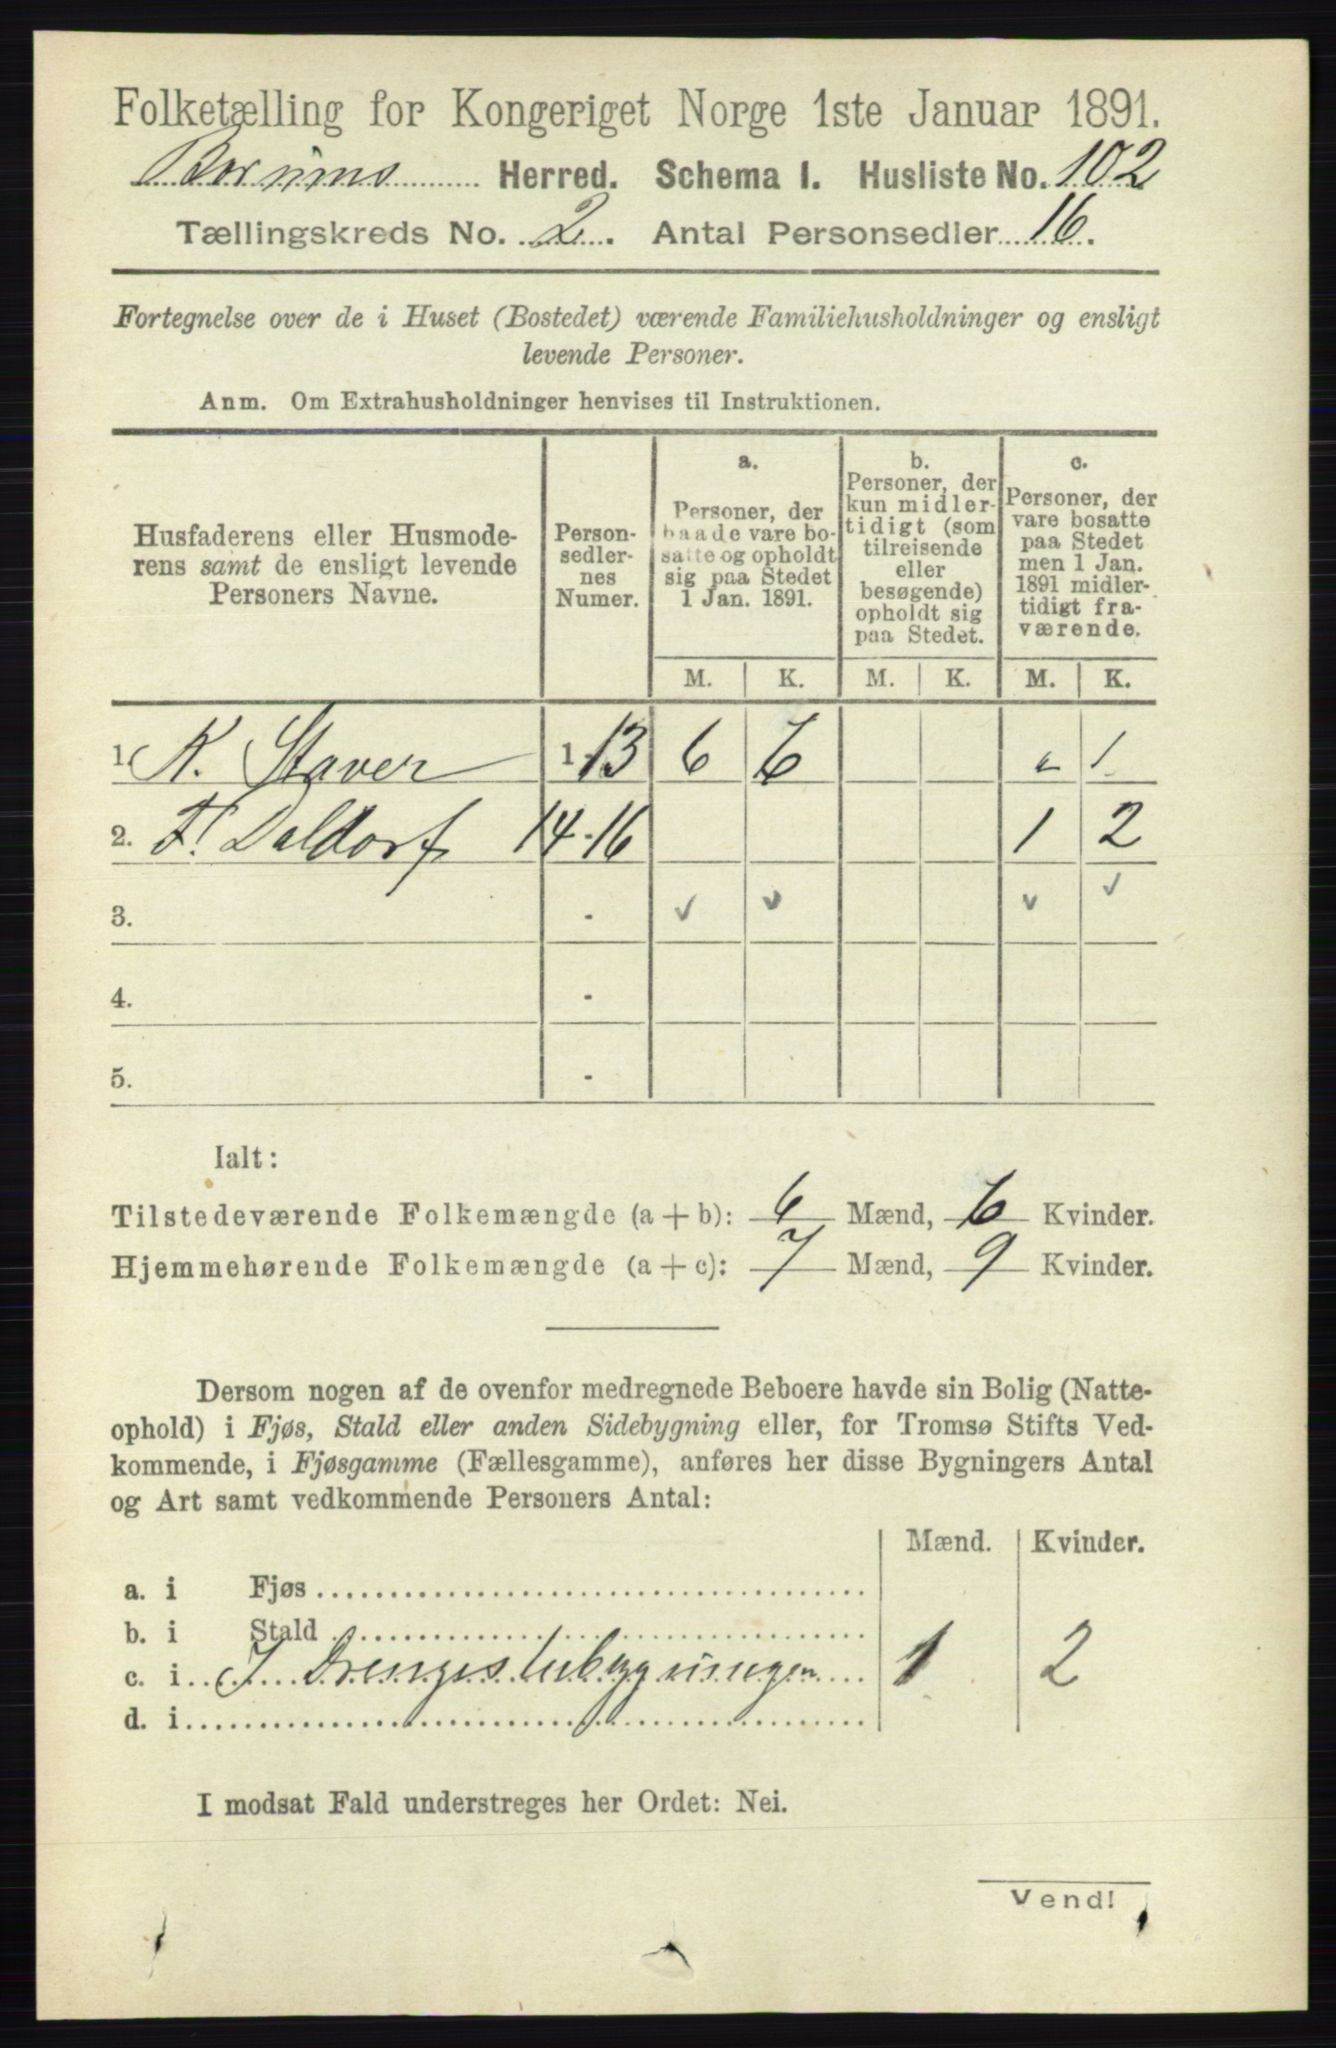 Folketælling for Kongeriget Norge 1ste Januar 1891.
Bærums Herred. Schema I. Husliste No. 102
Tællingskreds No. 2. Antal Personsedler 16.
Fortegnelse over de i Huset (Bostedet) værende Familiehusholdninger og ensligt
levende Personer.
Anm. Om Extrahusholdninger henvises til Instruktionen.
Husfaderens eller Husmode-
rens samt de ensligt levende
Personers Navne.
Person-
sedler-
nes
Numer.
a.
Personer, der
baade vare bo-
satte og opholdt
sig paa Stedet
1 Jan. 1891.
b.
Personer, der
kun midler-
tidigt (som
tilreisende
eller
besøgende)
opholdt sig
paa Stedet.
c.
Personer, der
vare bosatte
paa Stedet
men 1 Jan.
1891 midler-
tidigt fra-
værende.
M. K. M. K. M. K.
1. K. Staver 1-13 6 6 " 1
2. F. Daldorf 14-16 1 2
3. - ✓ ✓ ✓ ✓
4. -
5. -
Ialt:
Tilstedeværende Folkemængde (a + b): 6 Mænd, 6 Kvinder.
Hjemmehørende Folkemængde (a + c): 7 Mænd, 9 Kvinder.
Dersom nogen af de ovenfor medregnede Beboere havde sin Bolig (Natte-
ophold) i Fjøs, Stald eller anden Sidebygning eller, for Tromsø Stifts Ved-
kommende, i Fjøsgamme (Fællesgamme), anføres her disse Bygningers Antal
og Art samt vedkommende Personers Antal:
Mænd. Kvinder.
a. i Fjøs
b. i Stald
c. i I Drengestubygningen 1 2
d. i
I modsat Fald understreges her Ordet: Nei.
Vend!